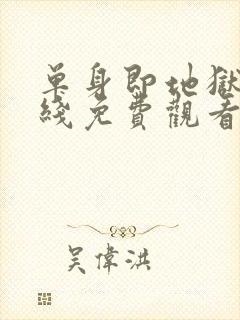 單身即地獄
綫免費觀看
吳偉洪